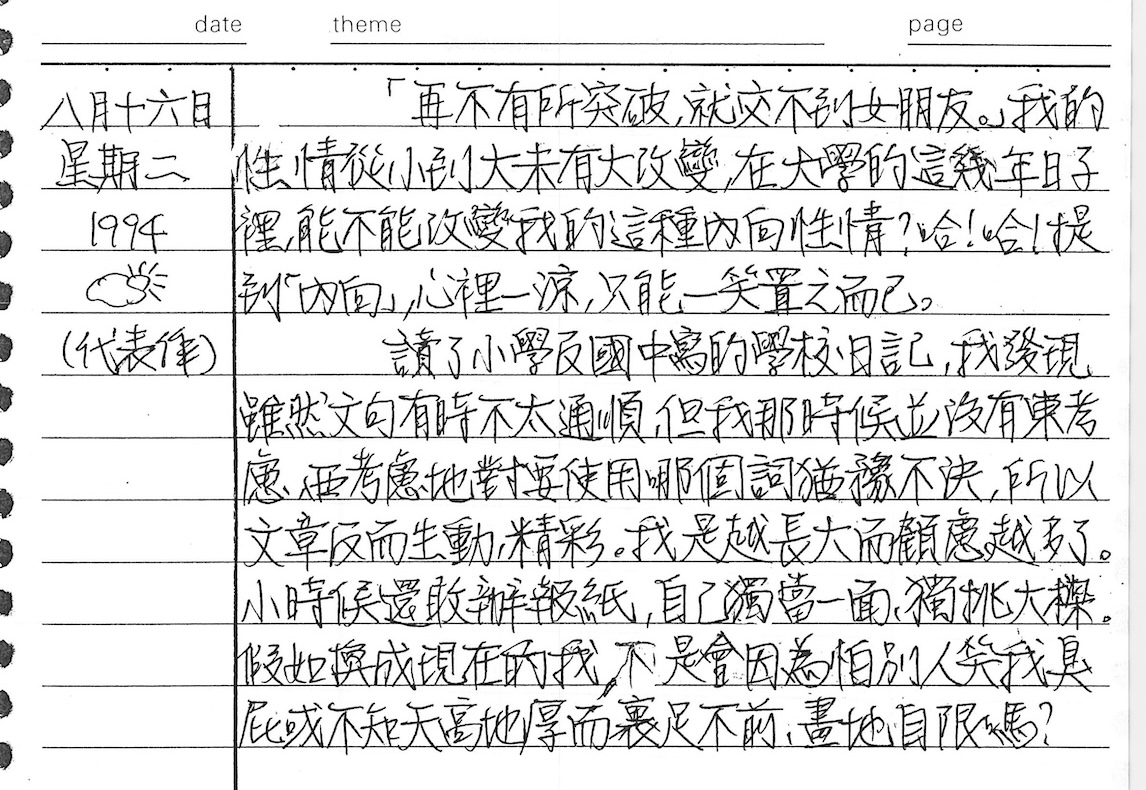 date theme page
八月十六日
星期二
1994
(代表作)
「再不有所突破,就交不到女朋友。」我的
性情從小到大未有大改變,在大學的這幾年日子
裡,能不能改變我的這種內向性情?哈!哈!提
到「內向」,心裡一涼,只能一笑置之而已。
讀了小學及國中寫的學校日記,我發現
雖然文句有時不太通順,但我那時候並沒有東考
慮、西考慮地對要使用哪個詞猶豫不決,所以
文章反而生動,精彩。我是越長大而顧慮越多了。
小時候還敢辦報紙,自己獨當一面、獨挑大樑。
假如換成現在的我,不是會因為怕別人笑我臭
屁或不知天高地厚而裹足不前、畫地自限嗎?